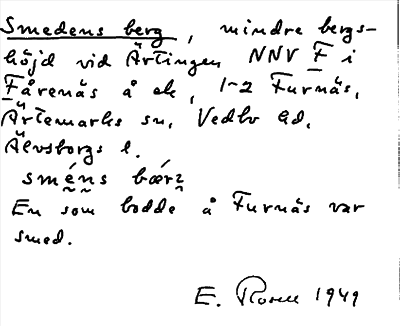 Smedens berg, mindre bergs-
höjd vid Ärtingen NNV F i
Fårenäs å ek, 1-2 Furnäs,
Ärtemarks sn, Vedbo hd,
Älvsborgs l.
sméns bærʒ
En som bodde å Furnäs var
smed.
E. Rosell 1949